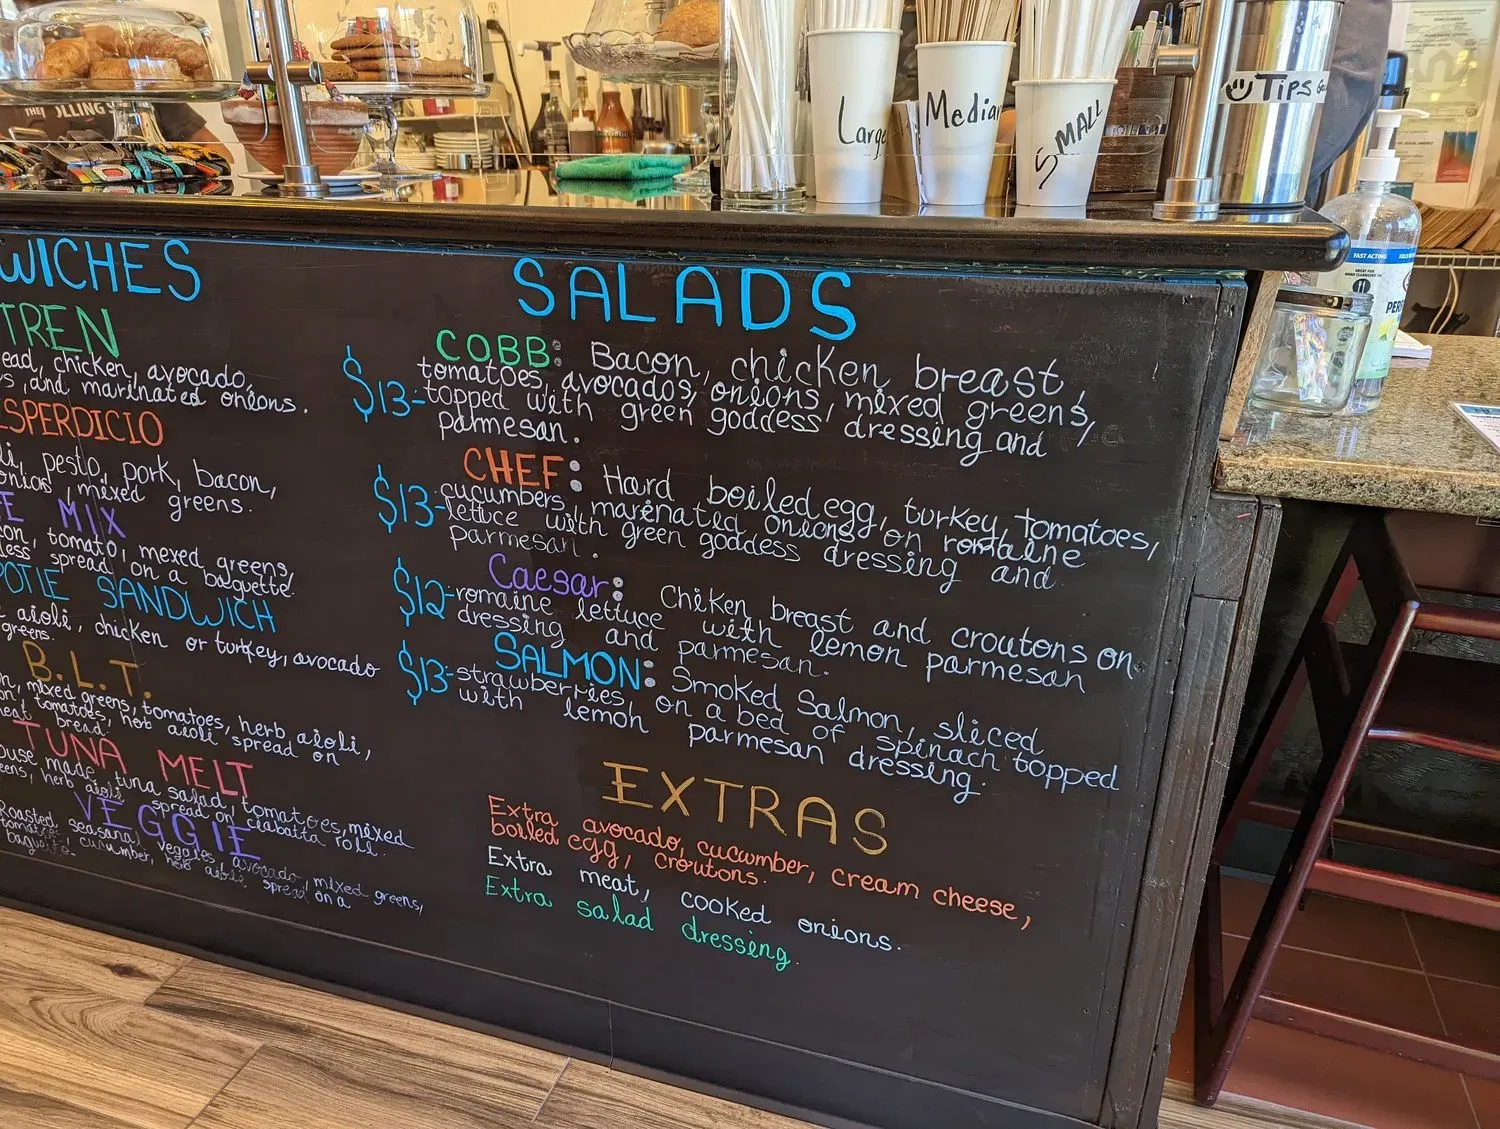 Large
Median
SMALL
Tips
FAST ACTING
WICHES
TREN
ead, chicken, avocado,
s, and marinated onions.
ESPERDICIO
li, pesto, pork, bacon,
onions, mixed greens.
E MIX
con, tomato, mexed greens,
dess spread on a baguette.
POTLE SANDWICH
aioli, chicken or turkey, avocado
greens.
B.L.T.
on, mixed greens, tomatoes, herb aioli,
on, tomatoes, herb aioli spread on
heat bread.
TUNA MELT
ouse made, tuna salad, tomatoes, mixed
eens, herb aioli spread on ciabatta roll.
VEGGIE
Roasted seasanal veggies, avocado, mixed greens,
tomatoe, cucumber, herb aioli spread on a
baguette.
SALADS
COBB: Bacon, chicken breast,
$13- tomatoes, avocados, onions, mixed greens,
topped with green goddess dressing and
parmesan.
CHEF: Hard boiled egg, turkey, tomatoes,
$13- cucumbers, marinated onions on romaine
lettuce with green goddess dressing and
parmesan.
Caesar: Chiken breast and croutons on
$12- romaine lettuce with lemon parmesan
dressing and parmesan.
SALMON: Smoked Salmon, sliced
$13- strawberries on a bed of spinach topped
with lemon parmesan dressing.
EXTRAS
Extra avocado, cucumber, cream cheese,
boiled egg, croutons.
Extra meat, cooked onions.
Extra salad dressing.